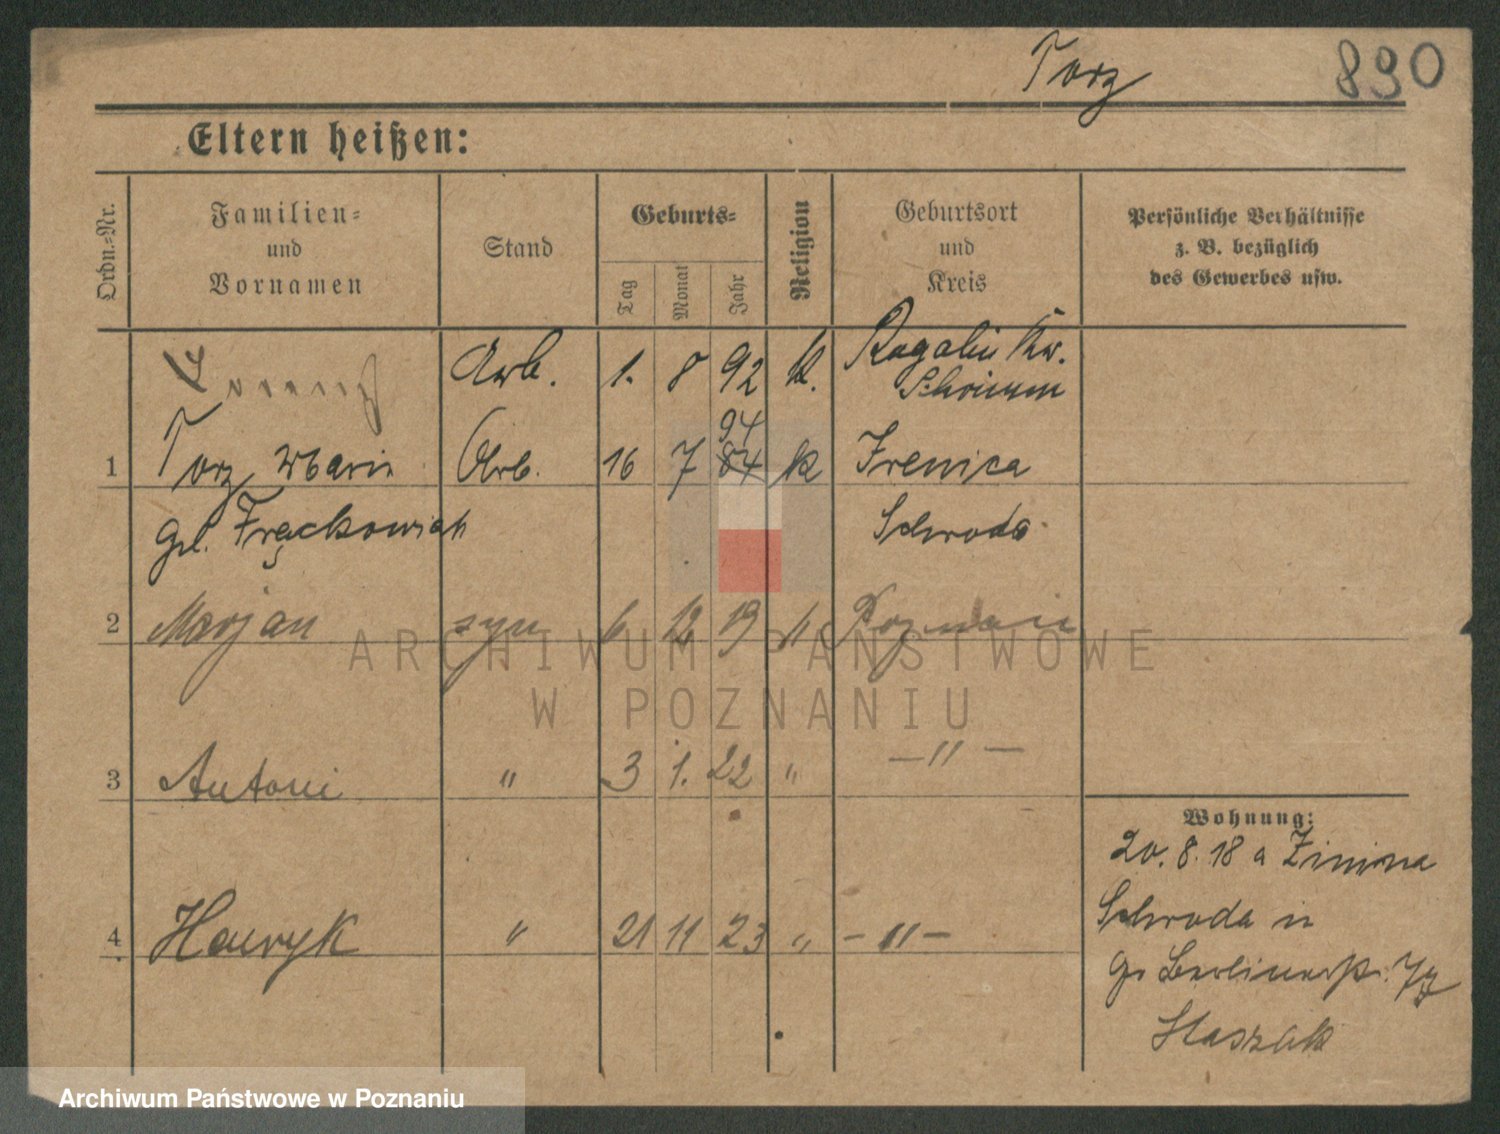 Torz 890
Eltern heißen:
Ordn.-Nr.
Familien-
und
Vornamen
Stand
Geburts-
Tag
Monat
Jahr
Religion
Geburtsort
und
Kreis
Persönliche Verhältnisse
z. B. bezüglich
des Gewerbes usw.
Arb. 1. 8 92 k. Rogalin Kr.
Schrimm
94
1 Torz Arb. 16 7 84 k
gb. Frąckowiak Schroda
2 Marjan syn 6 12 19 k Poznań
3 Antoni " 3 1. 22 " — " —
4 Henryk " 21 11 23 " — " —
Wohnung:
20. 8. 18 a Zimina
Schroda in
Gr Berlinerstr.
Staszak
ARCHIWUM PAŃSTWOWE
W POZNANIU
Archiwum Państwowe w Poznaniu